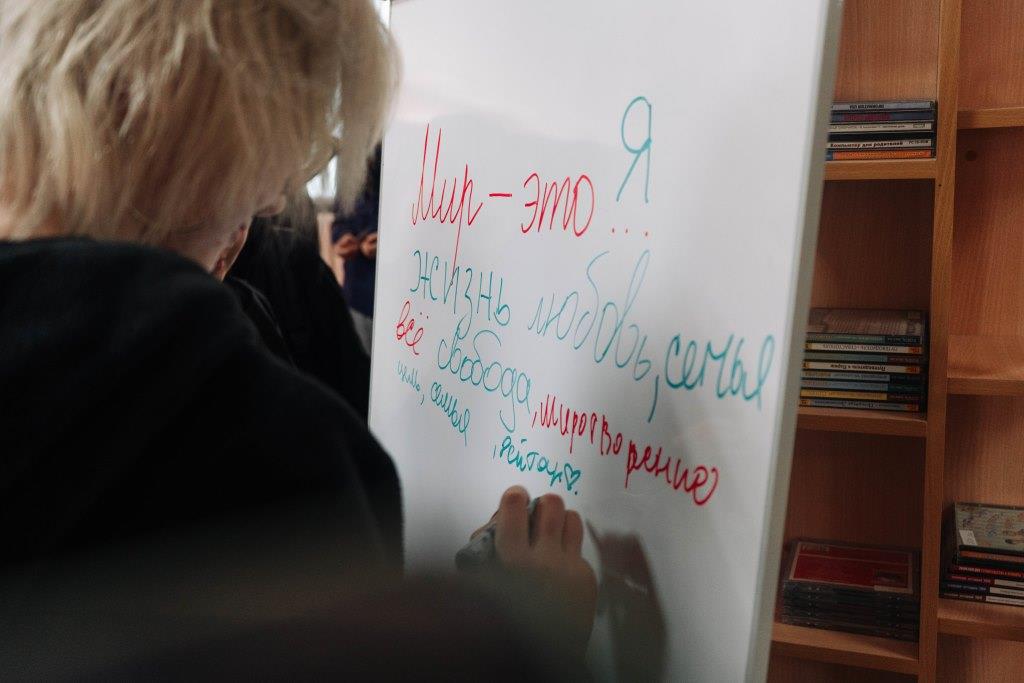 Я
Мир - это ...
жизнь любовь, семья
всё свобода, миротворение
семья
Компьютер для родителей